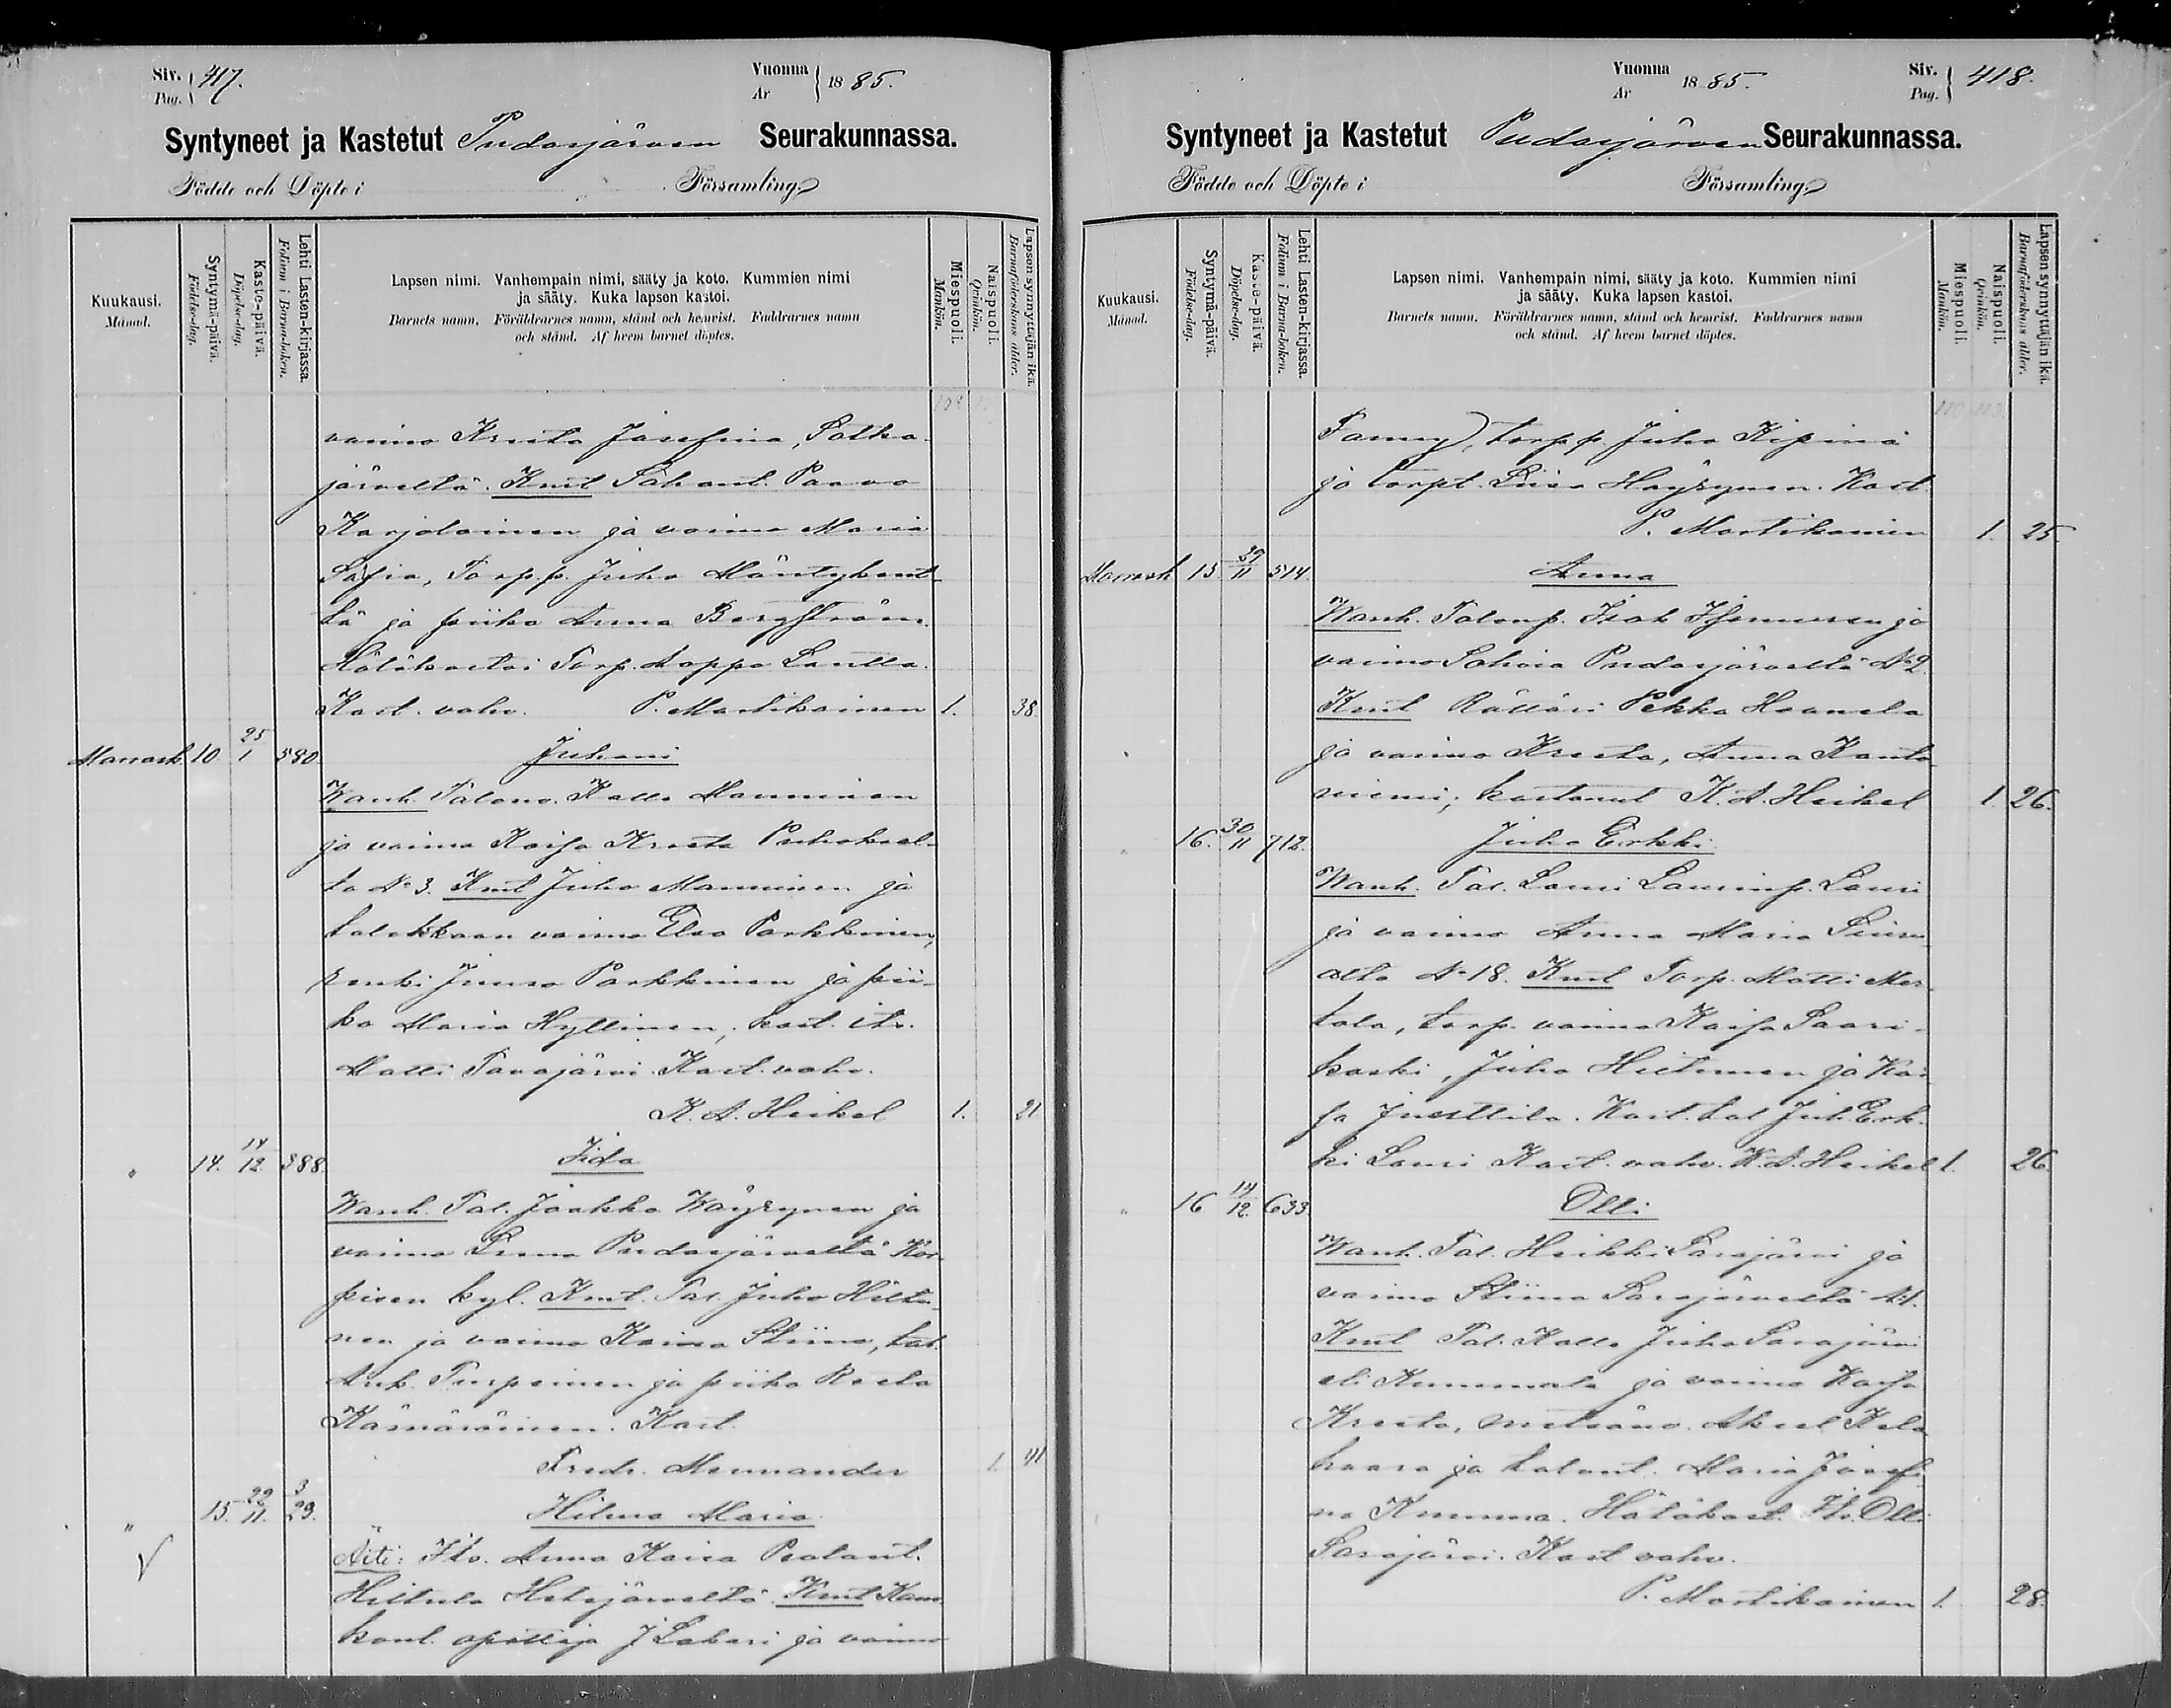 Siv. Pag. 417.
Vuonna Ar 1885.
Syntyneet ja Kastetut Pudasjärven Seurakunnassa.
Födde och Döpte i Församling.
Kuukausi. Månad.
Syntymä-päivä. Födelse-dag.
Kaste-päivä. Döpelse-dag.
Lehti Lasten-kirjassa. Folium i Barna-boken.
Lapsen nimi. Vanhempain nimi, sääty ja koto. Kummien nimi
ja sääty. Kuka lapsen kastoi.
Barnets namn. Föräldrarnes namn, stånd och hemvist. Faddrarnes namn
och stånd. Af hvem barnet döptes.
Miespuoli. Mankön.
Naispuoli. Qvinkön.
Lapsen synnyttäjän ikä. Barnaföderskans ålder.
vaimo Kreeta Josefina,
järveltä. Kmt Paavo
Karjalainen ja vaimo Maria
Sofia, Torpp. Juho Mäntykent
tä ja piika Anna Bergström.
Hätäkastoi Torp. Lantto.
Kast. vahv. P. Martikainen 1. 38.
Marrask. 10 25/1 580 Juhani
Wanh. Talono. Kalle Manninen
ja vaimo Kaisa Kreeta
ta No 3. Kmt Juho Manninen ja
talokkaan vaimo Elsa Parkkinen,
renki Juuso Parkkinen ja pii-
ka Maria Hyttinen, kast. its.
Matti Tavajärvi. Kast. vahv.
K. A. Heikel 1. 21
" 14. 14/12 388. Iida
Wanh. Tal. Jaakko Wäyrynen ja
vaimo Pudasjärveltä Kor-
pisen kyl. Kmt. Tal. Juho Hiltu-
nen ja vaimo Kaisa Stiina, tal.
Ant. Turpeinen ja piika Reeta
Kämäräinen. Kast.
Fredr. Mennander 1. 41
" 15. 22/11. 3/29. Hilma Maria
Äiti: Its. Anna Kaisa
Hiltula Hetejärveltä. Kmt Kans.
koul. opettaja J Lakari ja vaimo
Vuonna Ar 1885.
Siv. Pag. 418.
Syntyneet ja Kastetut Pudasjärven Seurakunnassa.
Födde och Döpte i Församling.
Kuukausi. Månad.
Syntymä-päivä. Födelse-dag.
Kaste-päivä. Döpelse-dag.
Lehti Lasten-kirjassa. Folium i Barna-boken.
Lapsen nimi. Vanhempain nimi, sääty ja koto. Kummien nimi
ja sääty. Kuka lapsen kastoi.
Barnets namn. Föräldrarnes namn, stånd och hemvist. Faddrarnes namn
och stånd. Af hvem barnet döptes.
Miespuoli. Mankön.
Naispuoli. Qvinkön.
Lapsen synnyttäjän ikä. Barnaföderskans ålder.
Fanny, torpp. Juho Kipinä
ja torpt. Liisa Häyrynen. Kast.
P. Martikainen 1. 25
Marrask 15 29/11 514. Anna
Wanh. Talonp. Isak ja
vaimo Pudasjärveltä No 2
Kmt Räätäri Pekka Haanela
ja vaimo Kreeta, Anna Kanto
niemi; kastanut K. A. Heikel 1. 26.
16. 30/11 712. Juho Erkki
Wanh. Tal. Lauri Laurinp. Lauri
ja vaimo Anna Maria
alta No 18. Kmt Torp. Matti Mer-
tala, torp. vaimo Kaisa Saari-
koski, Juho Hietanen ja Kai
sa Juusttila. Kast. tal. Juh. Erk-
ki Lauri Kast. vahv. K. A. Heikel 1. 26
" 16 14/12 633. Olli
Wanh. Tal. Heikki Sarajärvi ja
vaimo Stiina Sarajärveltä No 1.
Kmt Tal. Kalle Juho Sarajärvi
eli Kummala ja vaimo Kaisa
Kreeta, metsänv. Aksel Kela
haara ja talont. Maria Josefi
na Kumma. Hätäkast. Its. Olli
Sarajärvi. Kast vahv.
P. Martikainen 1. 28.